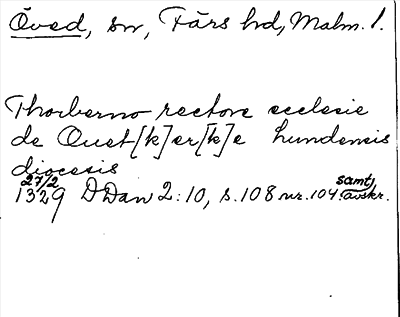 Öved, sn, Färs hd, Malm. l.
Thorberno rectore ecclesie
de Ouet[k]er[k]e Lundensis
diocesis
27/2
1329 DDan 2:10, s. 108 nr. 104. samt. avskr.